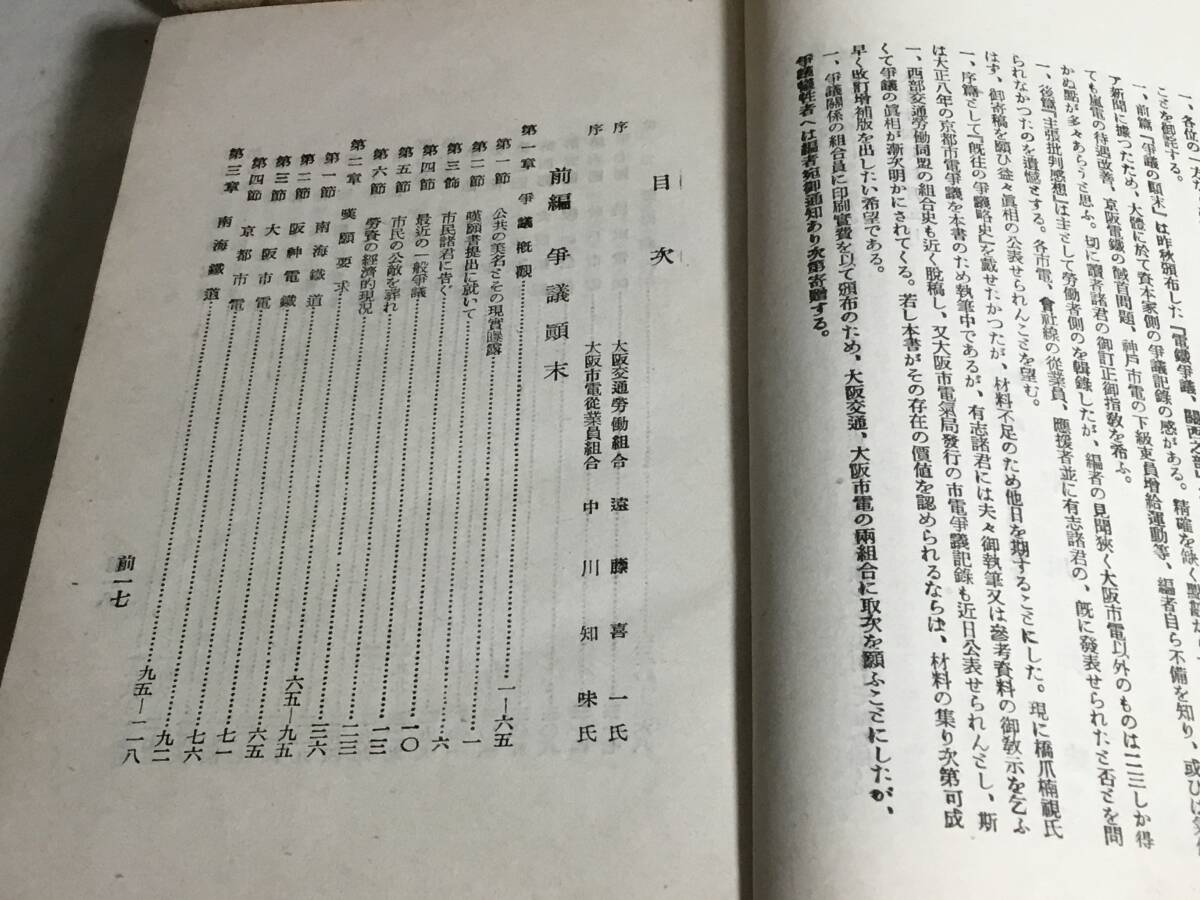 一、各位の一方な
ことを御詫する。
一、前篇『爭議の顛末』は昨秋頒布した『電鐵爭議、關西之部』
ア新聞に據つたため、大體に於て資本家側の爭議記錄の感がある。精確を缺く點
ても嵐電の待遇改善、京阪電鐵の馘首問題、神戶市電の下級吏員增給運動等、編者自ら不備を知り、或ひは
かぬ點が多々あらうと思ふ。切に讀者諸君の御訂正御指敎を希ふ。
一、後篇『主張批判感想』は主として勞働者側のを輯錄したが、編者の見聞狹く大阪市電以外のものは二三しか得
られなかつたのを遺憾とする。各市電、會社線の從業員、應援者並に有志諸君の、旣に發表せられたと否とを問
はず、御寄稿を願ひ益々眞相の公表せられんことを望む。
一、序篇として『旣往の爭議略史』を載せたかつたが、材料不足のため他日を期することにした。現に橋爪楠視氏
は大正八年の京都市電爭議を本書のため執筆中であるが、有志諸君には夫々御執筆又は參考資料の御敎示を乞ふ
一、西部交通勞働同盟の組合史も近く脫稿し、又大阪市電氣局發行の市電爭議記錄も近日公表せられんとし、斯
くて爭議の眞相が漸次明かにされてくる。若し本書がその存在の價値を認められるならば、材料の集り次第可成
早く改訂增補版を出したい希望である。
一、爭議關係の組合員に印刷實費を以て頒布のため、大阪交通、大阪市電の兩組合に取次を願ふことにしたが、
爭議犧牲者へは編者宛御通知あり次第寄贈する。
目次
序 大阪交通勞働組合 遠藤喜一氏
序 大阪市電從業員組合 中川知味氏
前編 爭議顚末
第一章 爭議槪觀……一―六五
第一節 公共の美名とその現實曝露……一
第二節 嘆願書提出に就いて……六
第三節 市民諸君に告ぐ……一〇
第四節 最近の一般爭議……一三
第五節 市民の公敵を葬れ……二三
第六節 勞資の經濟的現況……三六
第二章 嘆願要求……六五―九五
第一節 南海鐵道……六五
第二節 阪神電鐵……七一
第三節 大阪市電……七六
第四節 京都市電……九二
第三章 南海鐵道……九五―二一八
前一七